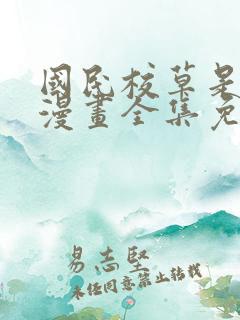 國民校草是
漫畫全集免
易志堅
未经同意禁止转载